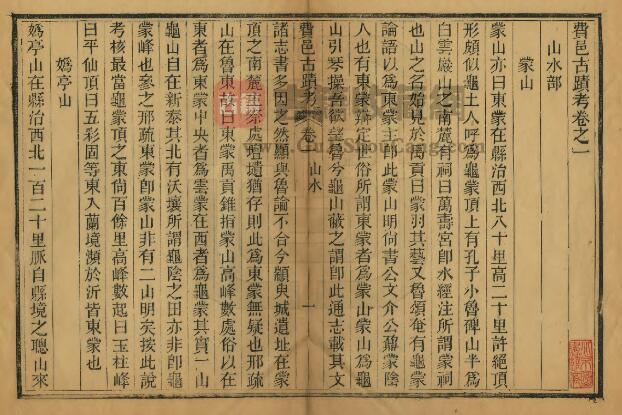 費邑古蹟考卷之一
山水部
蒙山
蒙山亦曰東蒙在縣治西北八十里高二十里許絕頂
形頗似龜土人呼爲龜蒙頂上有孔子小魯碑山半爲
白雲巖山之南麓有祠曰萬壽宮卽水經注所謂蒙祠
也山之名始見於禹貢曰蒙羽其藝又魯頌奄有龜蒙
論語以爲東蒙主卽此蒙山明尙書公文介公鼐蒙陰
人也有東蒙辯定世俗所謂東蒙者爲蒙山蒙山爲龜
山引琴操吾欲望魯兮龜山蔽之謂卽此通志載其文
費邑古蹟考 卷一 山水 一
諸志書多因之然顯與魯論不合今顓臾城遺址在蒙
頂之南麓祭處壇壝猶存則此爲東蒙無疑也邢疏
山在魯東故曰東蒙禹貢錐指蒙山高峰數處俗以在
東者爲東蒙中央者爲雲蒙在西者爲龜蒙其實一山
龜山自在新泰其北有沃壤所謂龜陰之田亦非卽龜
蒙峰也參之邢疏東蒙卽蒙山非有二山明矣按此說
考核最當龜蒙頂之東尙百餘里高峰數起曰玉柱峰
曰平仙頂曰五彩固等東入蘭境瀕於沂皆東蒙也
嫣亭山
嫣亭山在縣治西北一百二十里脈自縣境之聰山來